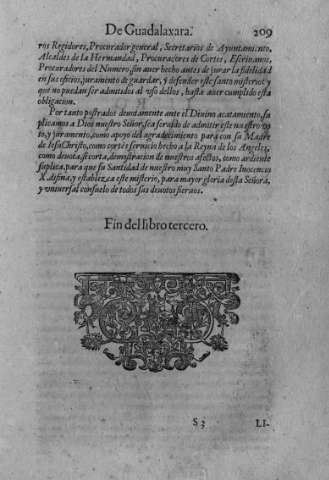 De Guadalaxara. 209
ros Regidores, Procurador general, Secretarios de Ayuntamiento,
Alcaldes de la Hermandad, Procuradores de Cortes, Escrivanos,
Procuradores del Numero, sin auer hecho antes de jurar la fidelidad
en sus oficios, juramento de guardar, y defender este santo misterio: y
que no puedan ser admitidos al vso dellos, hasta auer cumplido esta
obligacion.
Por tanto postrados deuotamente ante el Diuino acatamiento, su
plicamos a Dios nuestro Señor, sea seruido de admitir este nuestro vo
to, y juramento, como apoyo del agradecimiento para con su Madre
de Iesu Christo, como cortès seruicio hecho a la Reyna de los Angeles,
como deuota, si corta, demostracion de nuestros afectos, como ardiente
suplica, para que su Santidad de nuestro muy Santo Padre Inocencio
X. difina, y establezca este misterio, para mayor gloria desta Señora,
y vniuersal consuelo de todos sus deuotos sieruos.
Fin del libro tercero.
S 3 LI-